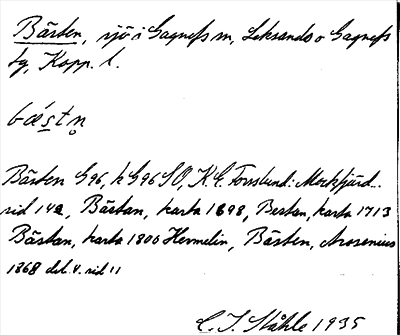 Bästen, sjö i Gagnefs sn, Leksands o Gagnefs
tg, Kopp. l.
bǽstn̥
Bästen G96, h G96 SO, K.E. Forsslund: Mockfjärd...
sid 14e, Bästan, karta 1698, Bestan, karta 1713
Bästan, karta 1800 Hermelin, Bästen, Arosenius
1868 del. V. sid 11
C. I. Ståhle 1935